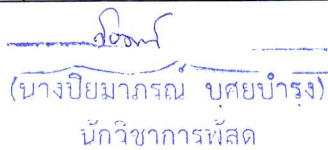 (นางปิยมาภรณ์ บุศยบำรุง)
นักวิชาการพัสดุ